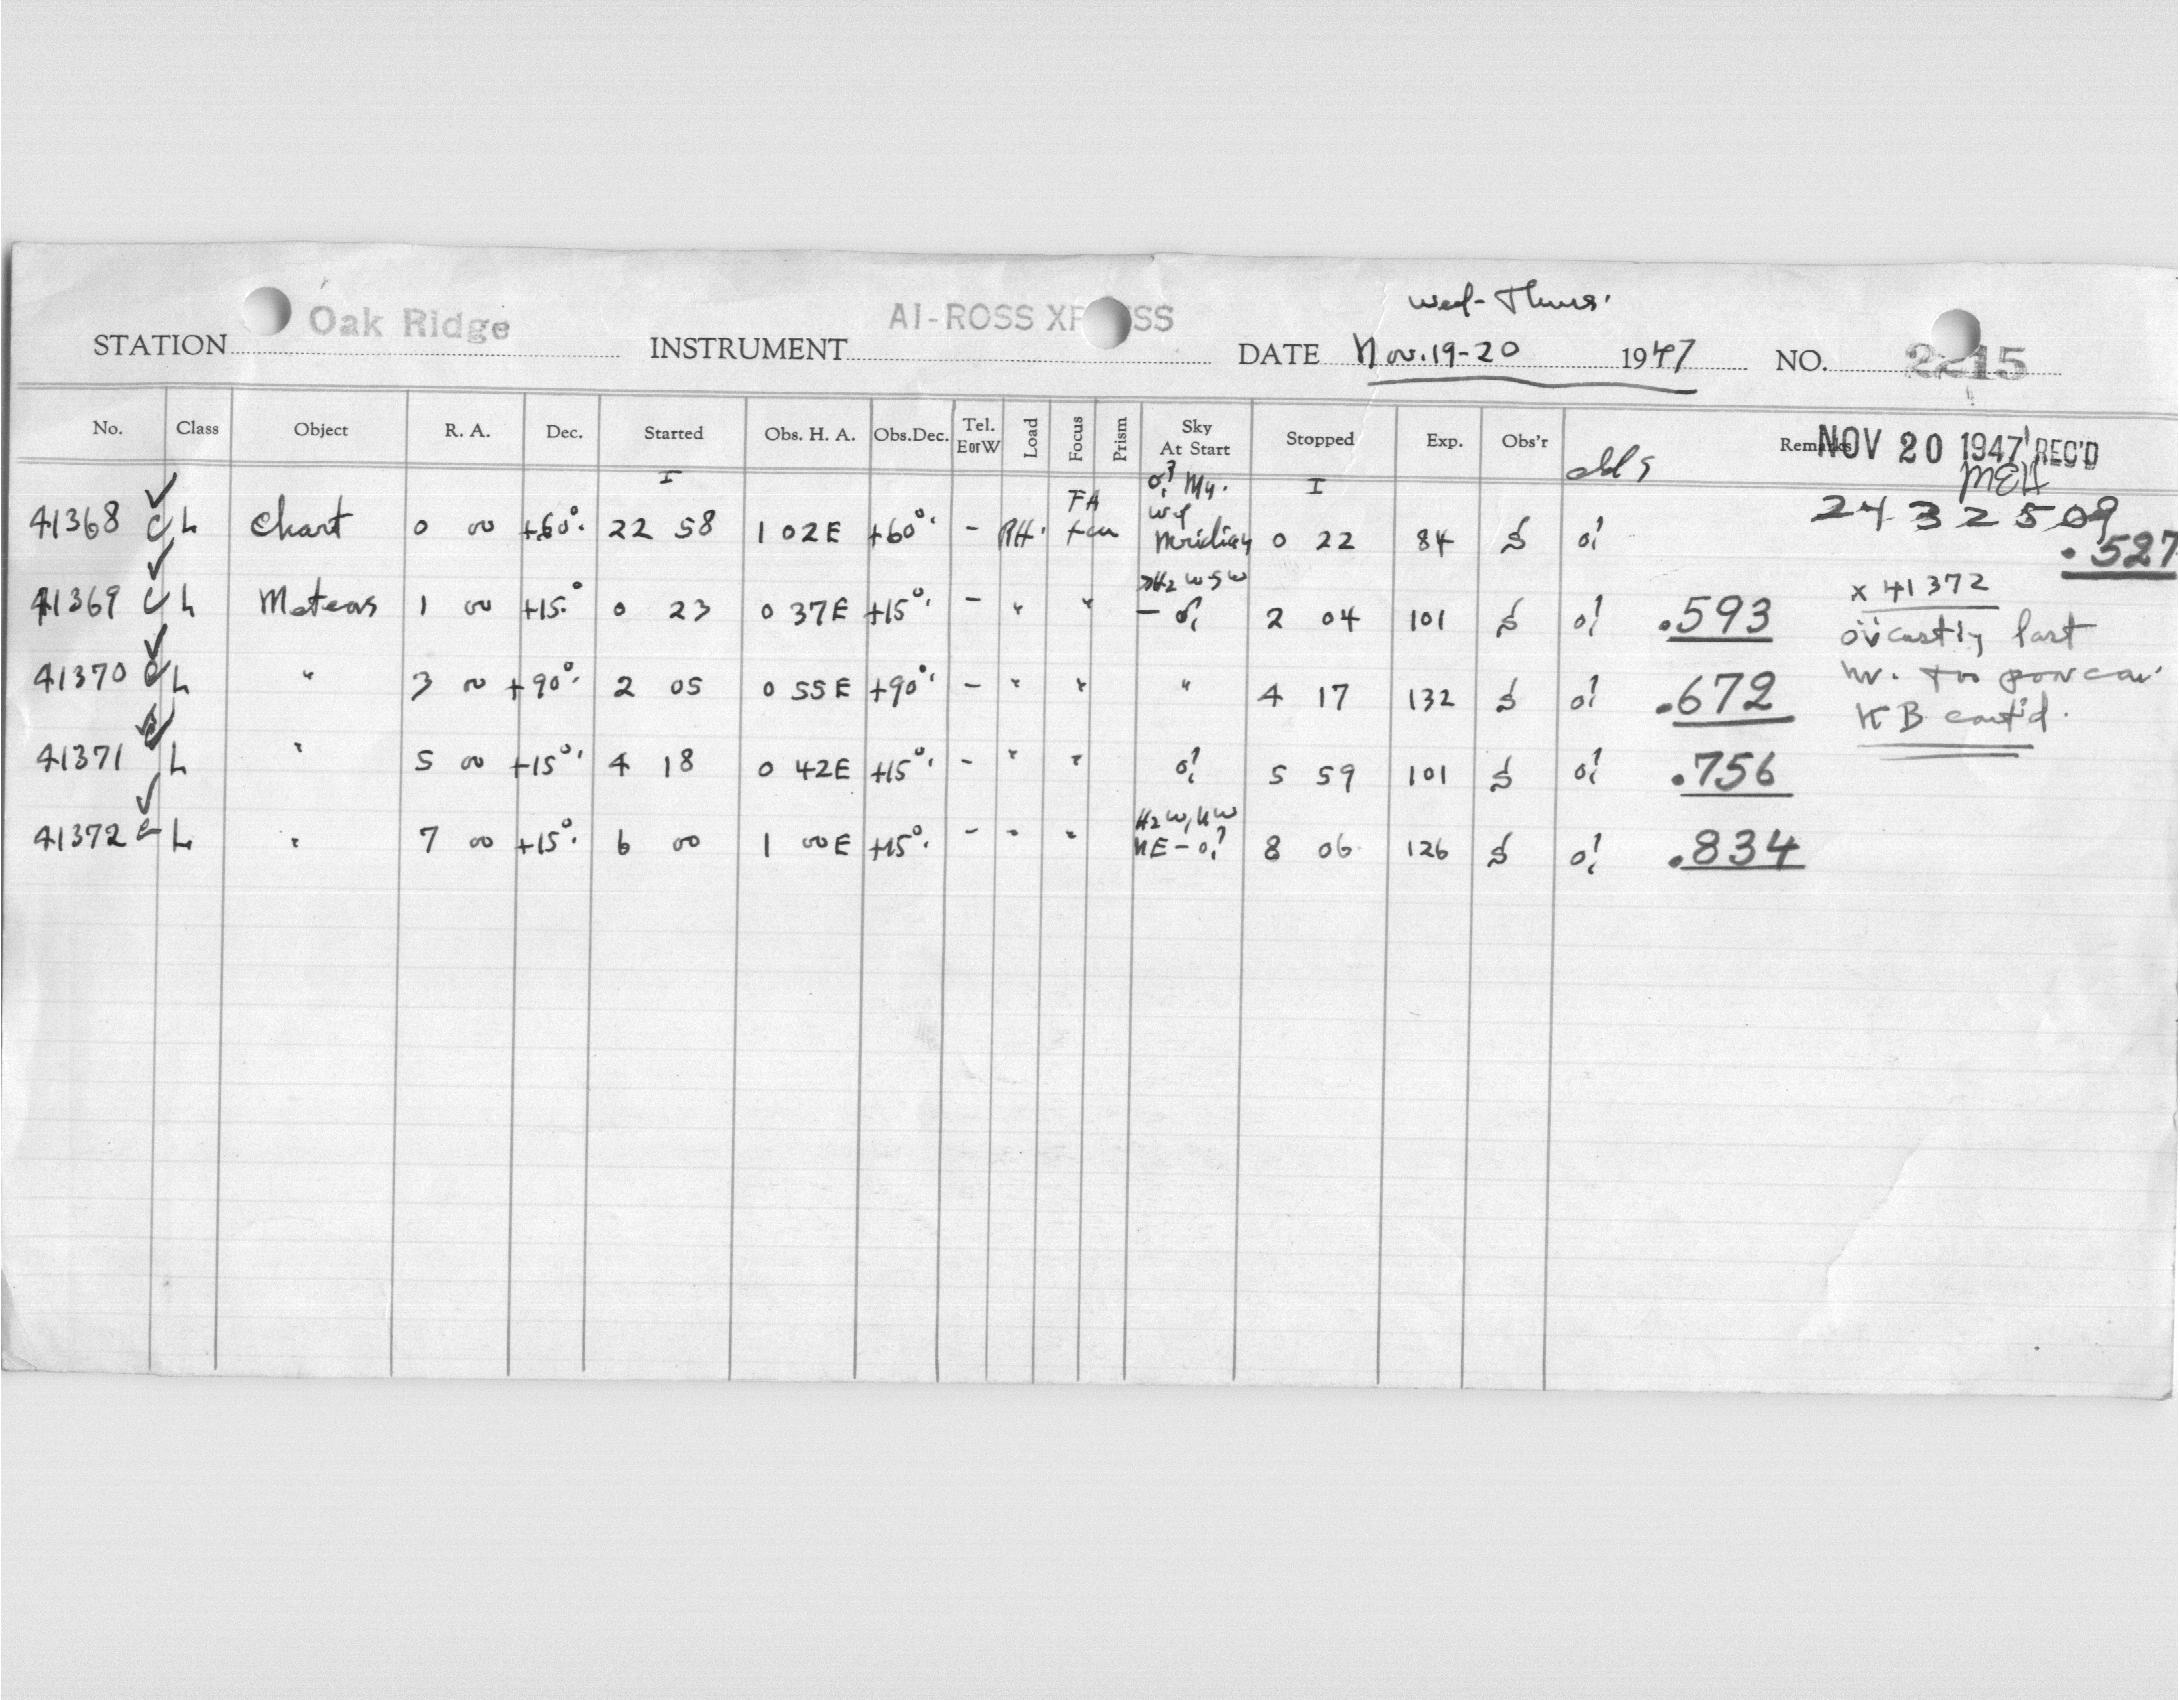 Wed-Thurs.
STATION Oak Ridge INSTRUMENT AI-ROSS XP SS DATE Nov. 19-20 1947 NO. 2215
No. Class Object R. A. Dec. Started Obs. H. A. Obs.Dec. Tel. E or W Load Focus Prism Sky At Start Stopped Exp. Obs'r Remarks
NOV 20 1947 REC'D
MEH
I I
41368 C L Chart 0 00 +60°. 22 58 1 02E +60°. - RH. FA Meridian 0 22 84 0 2432509 .527
41369 C L Meteors 1 00 +15.° 0 23 0 37E +15°. - " " H2 W SW - 2 04 101 .593
41370 C L " 3 00 +90°. 2 05 0 55E +90°. - " " " 4 17 132 .672
41371 L " 5 00 +15°. 4 18 0 42E +15°. - " " 5 59 101 .756
41372 C L " 7 00 +15°. 6 00 1 00E +15°. - " " H2 W, NW NE - 8 06 126 .834
x 41372
last
hr. too poor
KB cont'd.